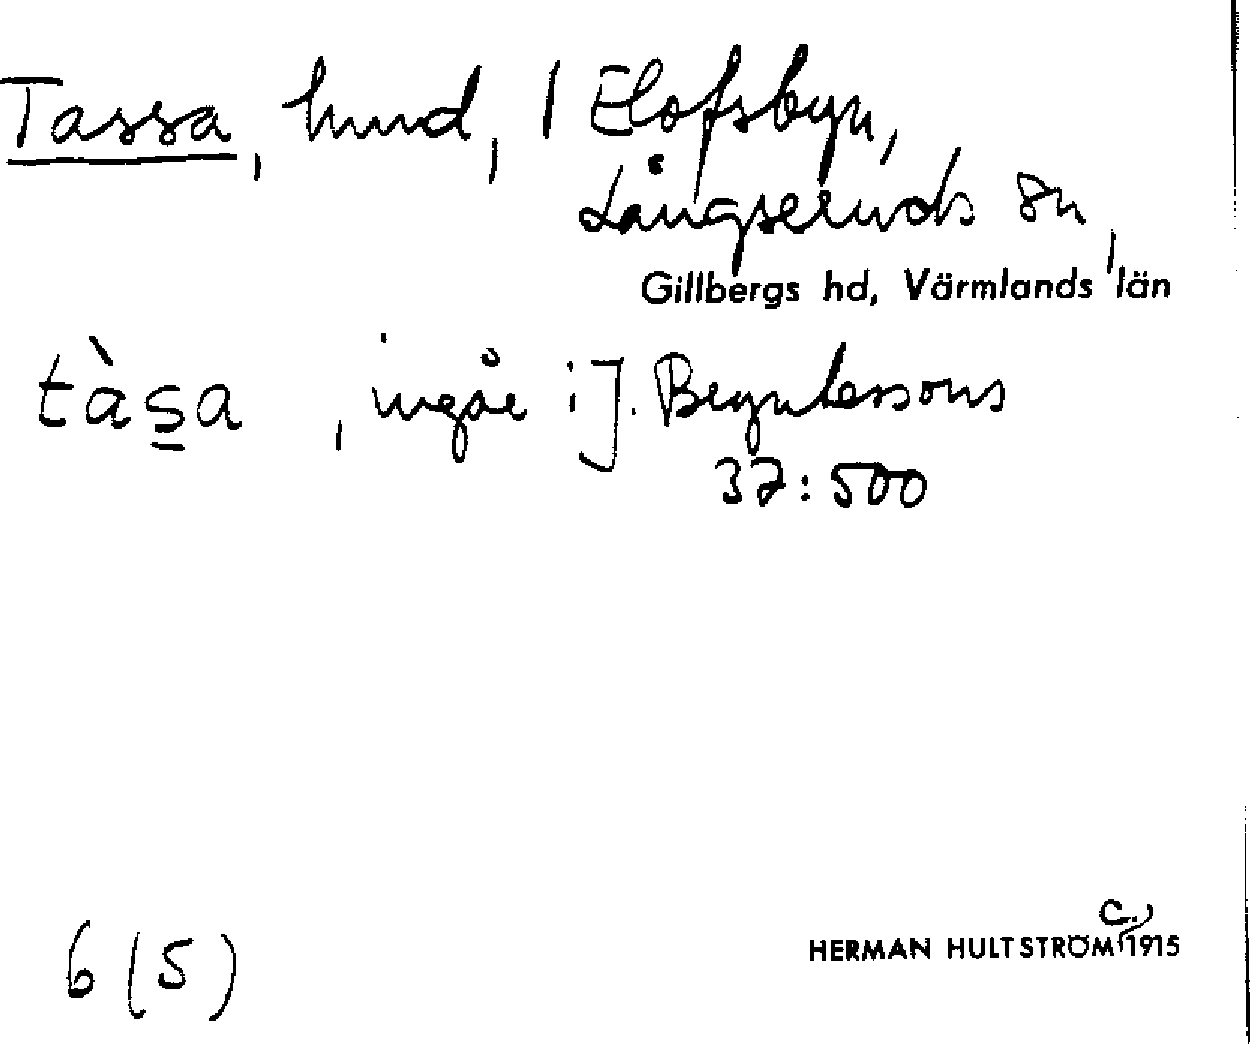 Tassa, hund, 1 Elofsbyn,
Långseruds sn,
Gillbergs hd, Värmlands län
tàs̲a, ingår i J. Bryntessons
37:500
6 (5)
HERMAN HULTSTRÖM c., 1915